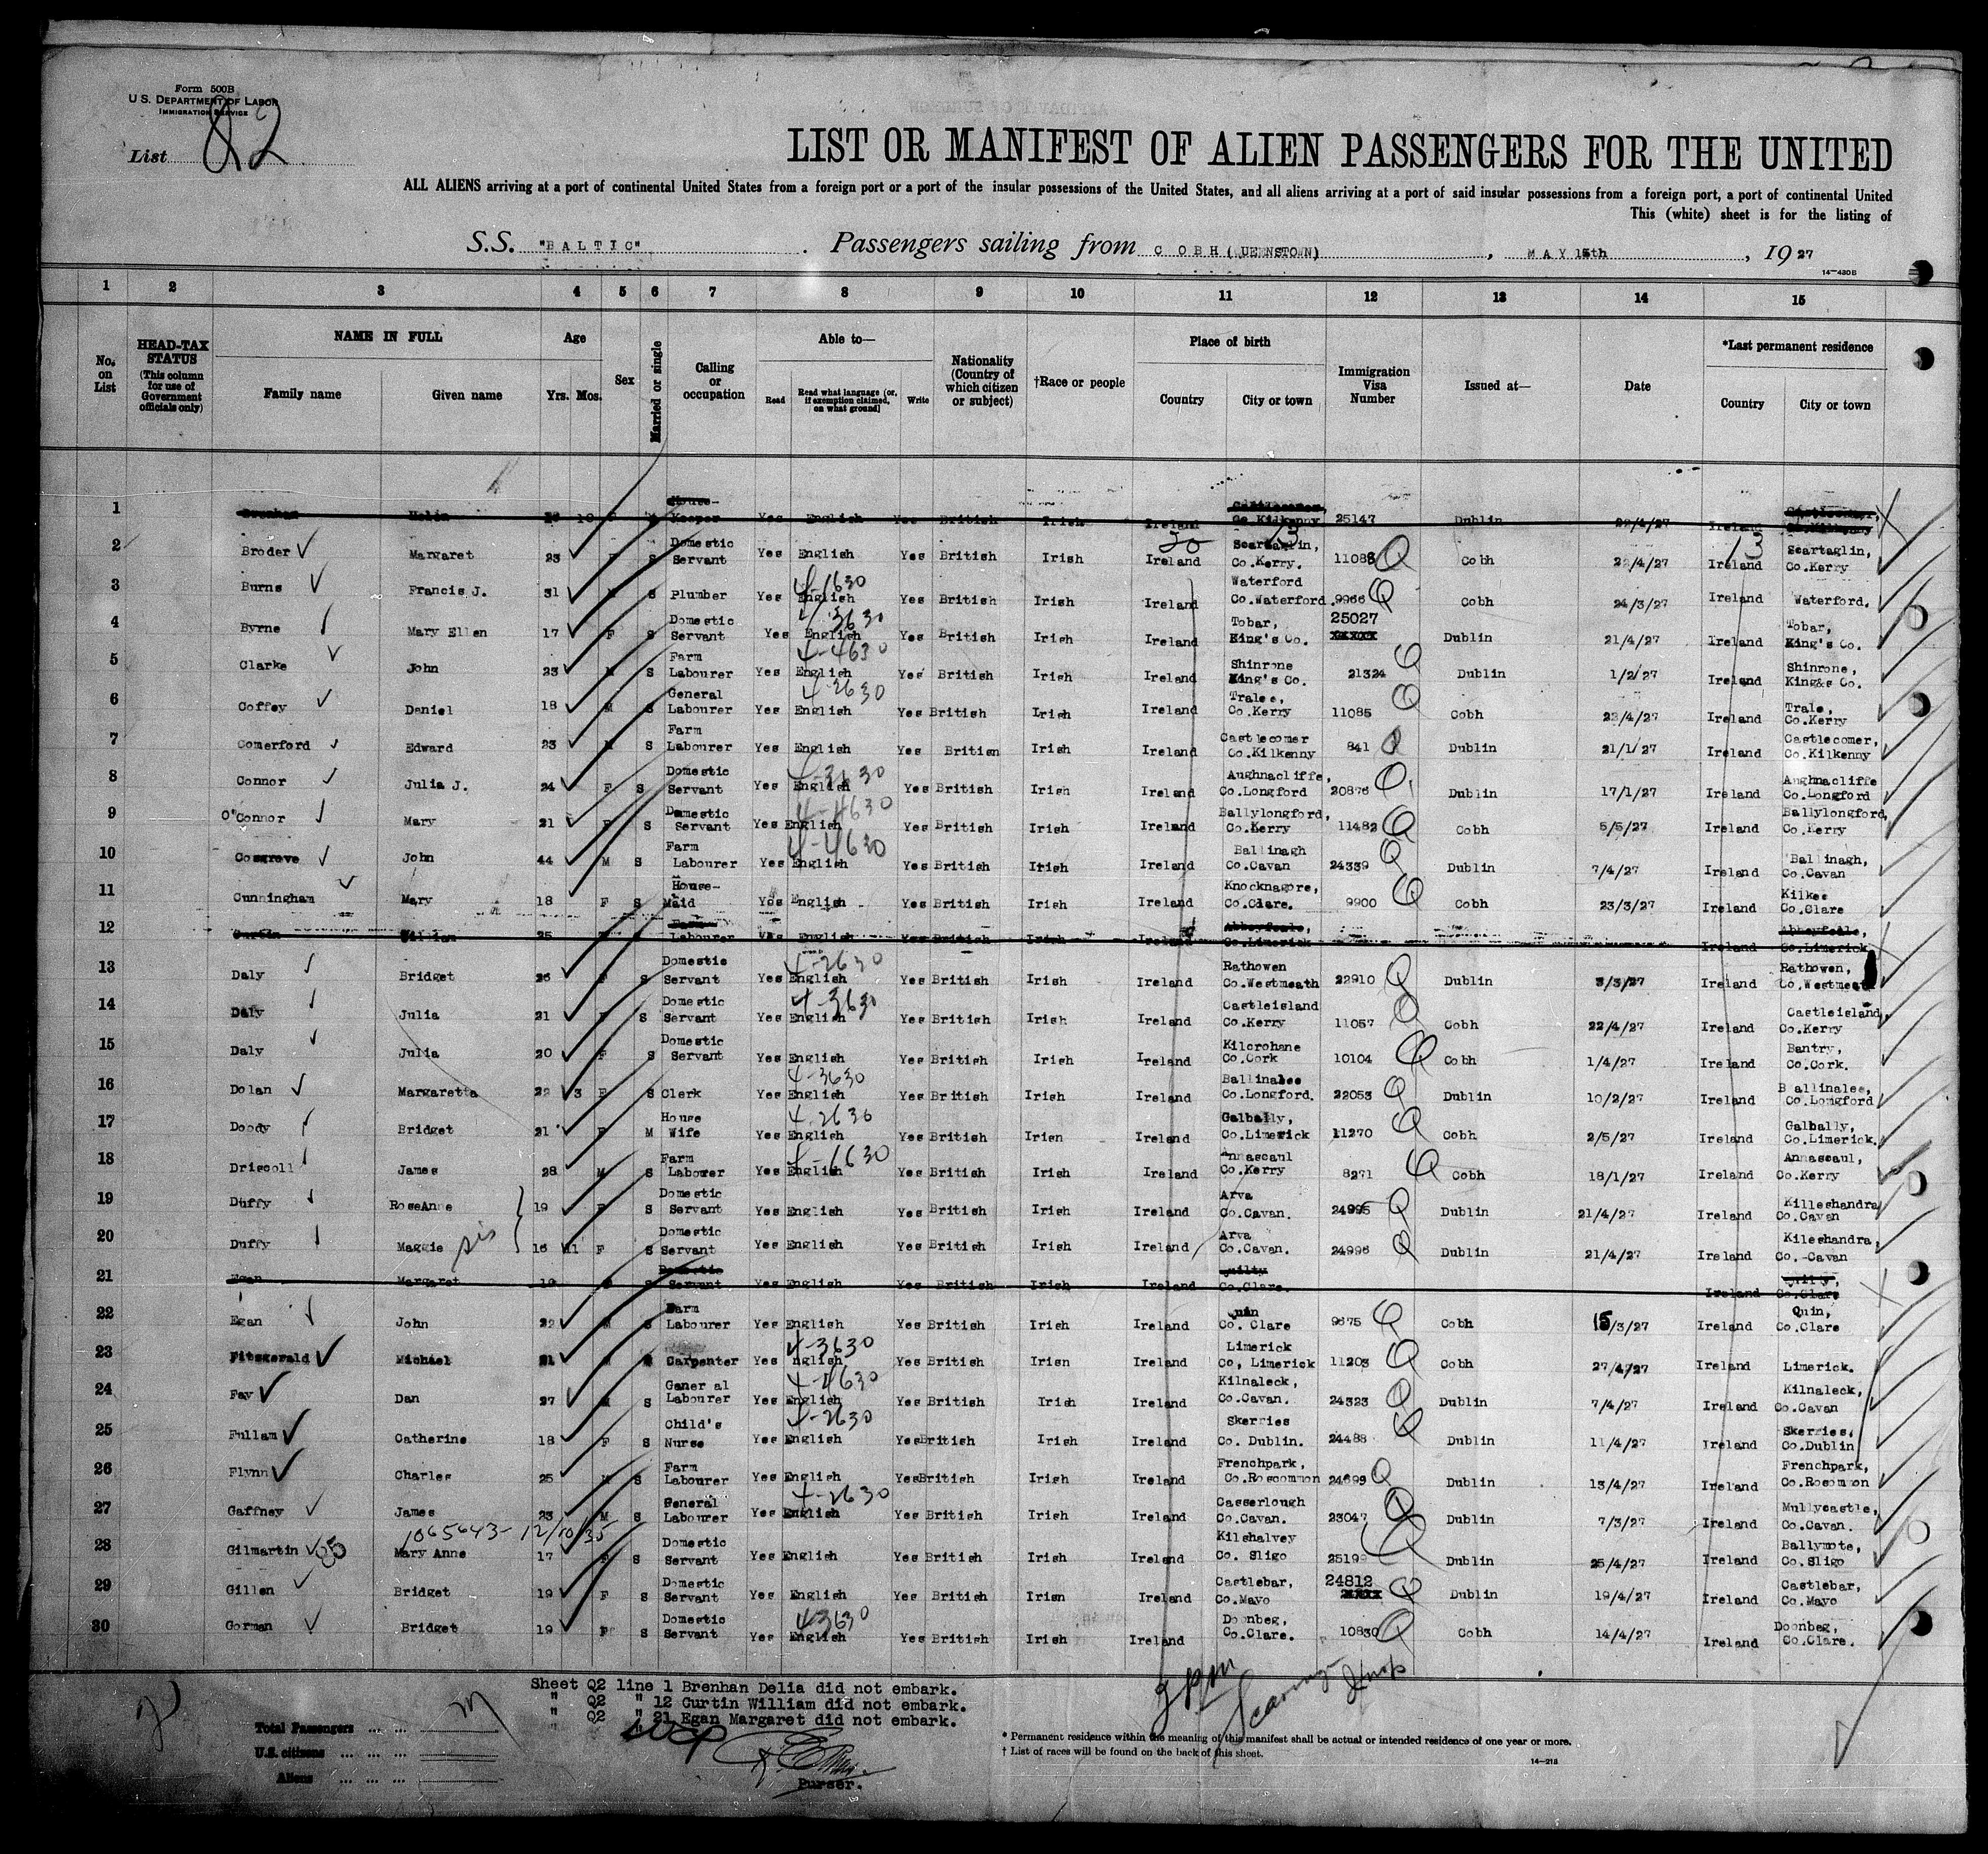 Form 500B
U. S. DEPARTMENT OF LABOR
IMMIGRATION SERVICE
List Q2
LIST OR MANIFEST OF ALIEN PASSENGERS FOR THE UNITED
ALL ALIENS arriving at a port of continental United States from a foreign port or a port of the insular possessions of the United States, and all aliens arriving at a port of said insular possessions from a foreign port, a port of continental United
This (white) sheet is for the listing of
S.S. "BALTIC" Passengers sailing from COBH (UEENSTOWN), MAY 15th, 1927
14-430B
1 2 3 4 5 6 7 8 9 10 11 12 13 14 15
No. on List
HEAD-TAX STATUS (This column for use of Government officials only)
NAME IN FULL Family name Given name
Age Yrs. Mos.
Sex
Married or single
Calling or occupation
Able to— Read Read what language [or, if exemption claimed, on what ground] Write
Nationality (Country of which citizen or subject)
†Race or people
Place of birth Country City or town
Immigration Visa Number
Issued at—
Date
*Last permanent residence Country City or town
1 House-Keeper Yes English Yes British Irish Ireland Co.Kilkenny 25147 Dublin 22/4/27 Ireland Co.Kilkenny
2 Broder Margaret 23 F S Domestic Servant Yes English Yes British Irish Ireland Scartaglin, Co.Kerry. 11088 Cobh /4/27 Ireland Scartaglin, Co.Kerry
3 Burns Francis J. 31 M S Plumber Yes English 4-1630 Yes British Irish Ireland Waterford Co.Waterford. 9966 Cobh 24/3/27 Ireland Waterford.
4 Byrne Mary Ellen 17 F S Domestic Servant Yes English 4-3630 Yes British Irish Ireland Tobar, King's Co. 25027 Dublin 21/4/27 Ireland Tobar, King's Co.
5 Clarke John 23 M S Farm Labourer Yes English 4-4630 Yes British Irish Ireland Shinrone King's Co. 21324 Dublin 1/2/27 Ireland Shinrone, King&s Co.
6 Coffey Daniel 18 M S General Labourer Yes English 4-2630 Yes British Irish Ireland Tralee, Co.Kerry 11085 Cobh 22/4/27 Ireland Trale, Co.Kerry
7 Comerford Edward 23 M S Farm Labourer Yes English Yes British Irish Ireland Castlecomer Co.Kilkenny 841 Dublin 21/1/27 Ireland Castlecomer, Co.Kilkenny
8 Connor Julia J. 24 F S Domestic Servant Yes English 4-3630 Yes British Irish Ireland Aughnacliffe, Co.Longford 20876 Dublin 17/1/27 Ireland Aughnacliffe Co.Longford
9 O"Connor Mary 21 F S Domestic Servant Yes English 4-4630 Yes British Irish Ireland Ballylongford, Co.Kerry 11482 Cobh 5/5/27 Ireland Ballylongford, Co.Kerry
10 Cosgrove John 44 M S Farm Labourer Yes English 4-4630 Yes British Irish Ireland Ballinagh Co.Cavan 24339 Dublin 7/4/27 Ireland Ballinagh, Co.Cavan
11 Cunningham Mary 18 F S House-Maid Yes English Yes British Irish Ireland Knocknagore, Co.Clare. 9900 Cobh 23/3/27 Ireland Kilkee Co.Clare
12 Curtin William 25 Farm Labourer Yes English Yes British Irish Ireland Abbeyfeale, Co.Limerick Ireland Abbeyfeale, Co.Limerick
13 Daly Bridget 26 F S Domestic Servant Yes English 4-2630 Yes British Irish Ireland Rathowen Co.Westmeath 22910 Dublin 3/3/27 Ireland Rathowen, Co.Westmeath
14 Daly Julia 21 F S Domestic Servant Yes English 4-3630 Yes British Irish Ireland Castleisland Co.Kerry 11057 Cobh 22/4/27 Ireland Castleisland, Co.Kerry
15 Daly Julia 20 F S Domestic Servant Yes English Yes British Irish Ireland Kilcrohane Co.Cork 10104 Cobh 1/4/27 Ireland Bantry, Co.Cork.
16 Dolan Margaretta 22 3 F S Clerk Yes English 4-3630 Yes British Irish Ireland Ballinalee Co.Longford. 22053 Dublin 10/2/27 Ireland Ballinalee, Co.Longford
17 Doody Bridget 21 F M House Wife Yes English 4-2630 Yes British Irish Ireland Galbally, Co.Limerick 11270 Cobh 2/5/27 Ireland Galbally, Co.Limerick.
18 Driscoll James 28 M S Farm Labourer Yes English 4-1630 Yes British Irish Ireland Annascaul Co.Kerry 8271 Cobh 18/1/27 Ireland Annascaul, Co.Kerry
19 Duffy RoseAnne 19 F S Domestic Servant Yes English Yes British Irish Ireland Arva Co.Cavan. 24995 Dublin 21/4/27 Ireland Killeshandra Co.Cavan
20 Duffy Maggie sis 16 11 F S Domestic Servant Yes English Yes British Irish Ireland Arva Co.Cavan. 24996 Dublin 21/4/27 Ireland Kileshandra, Co.-Cavan
21 Egan Margaret 19 S Domestic Servant Yes English Yes British Irish Ireland Quilty Co.Clare. Ireland Quilty, Co.Clare
22 Egan John 22 M S Farm Labourer Yes English Yes British Irish Ireland Quin Co. Clare 9675 Cobh 15/3/27 Ireland Quin, Co.Clare
23 Fitzgerald Michael 21 M S Carpenter Yes nglish 4-3630 Yes British Irish Ireland Limerick Co, Limerick 11203 Cobh 27/4/27 Ireland Limerick.
24 Fay Dan 27 M S General Labourer Yes English 4-4630 Yes British Irish Ireland Kilnaleck, Co.Cavan. 24323 Dublin 7/4/27 Ireland Kilnaleck, Co.Cavan
25 Fullam Catherine 18 F S Child's Nurse Yes English 4-2630 Yes British Irish Ireland Skerries Co. Dublin. 24488 Dublin 11/4/27 Ireland Skerries, Co.Dublin
26 Flynn Charles 25 M S Farm Labourer Yes English Yes British Irish Ireland Frenchpark, Co.Roscommon 24699 Dublin 13/4/27 Ireland Frenchpark, Co.Roscommon
27 Gaffney James 23 M S General Labourer Yes English 4-2630 Yes British Irish Ireland Casserlough Co.Cavan. 23047 Dublin 7/3/27 Ireland Mullycastle, Co.Cavan.
1065643-12/10/35
28 Gilmartin Mary Anne 17 F S Domestic Servant Yes English Yes British Irish Ireland Kilshalvey Co. Sligo 25199 Dublin 25/4/27 Ireland Ballymote, Co.Sligo
29 Gillen Bridget 19 F S Domestic Servant Yes English Yes British Irish Ireland Castlebar, Co.Mayo 24812 Dublin 19/4/27 Ireland Castlebar, Co.Mayo
30 Gorman Bridget 19 F S Domestic Servant Yes English 4-3630 Yes British Irish Ireland Doonbeg, Co.Clare. 10830 Cobh 14/4/27 Ireland Doonbeg, Co.Clare.
Sheet Q2 line 1 Brenhan Delia did not embark.
" Q2 " 12 Curtin William did not embark.
" Q2 " 21 Egan Margaret did not embark.
Purser.
Total Passengers ... ...
U.S. citizens ... ... ...
Aliens ... ... ...
* Permanent residence within the meaning of this manifest shall be actual or intended residence of one year or more.
† List of races will be found on the back of this sheet.
14-218